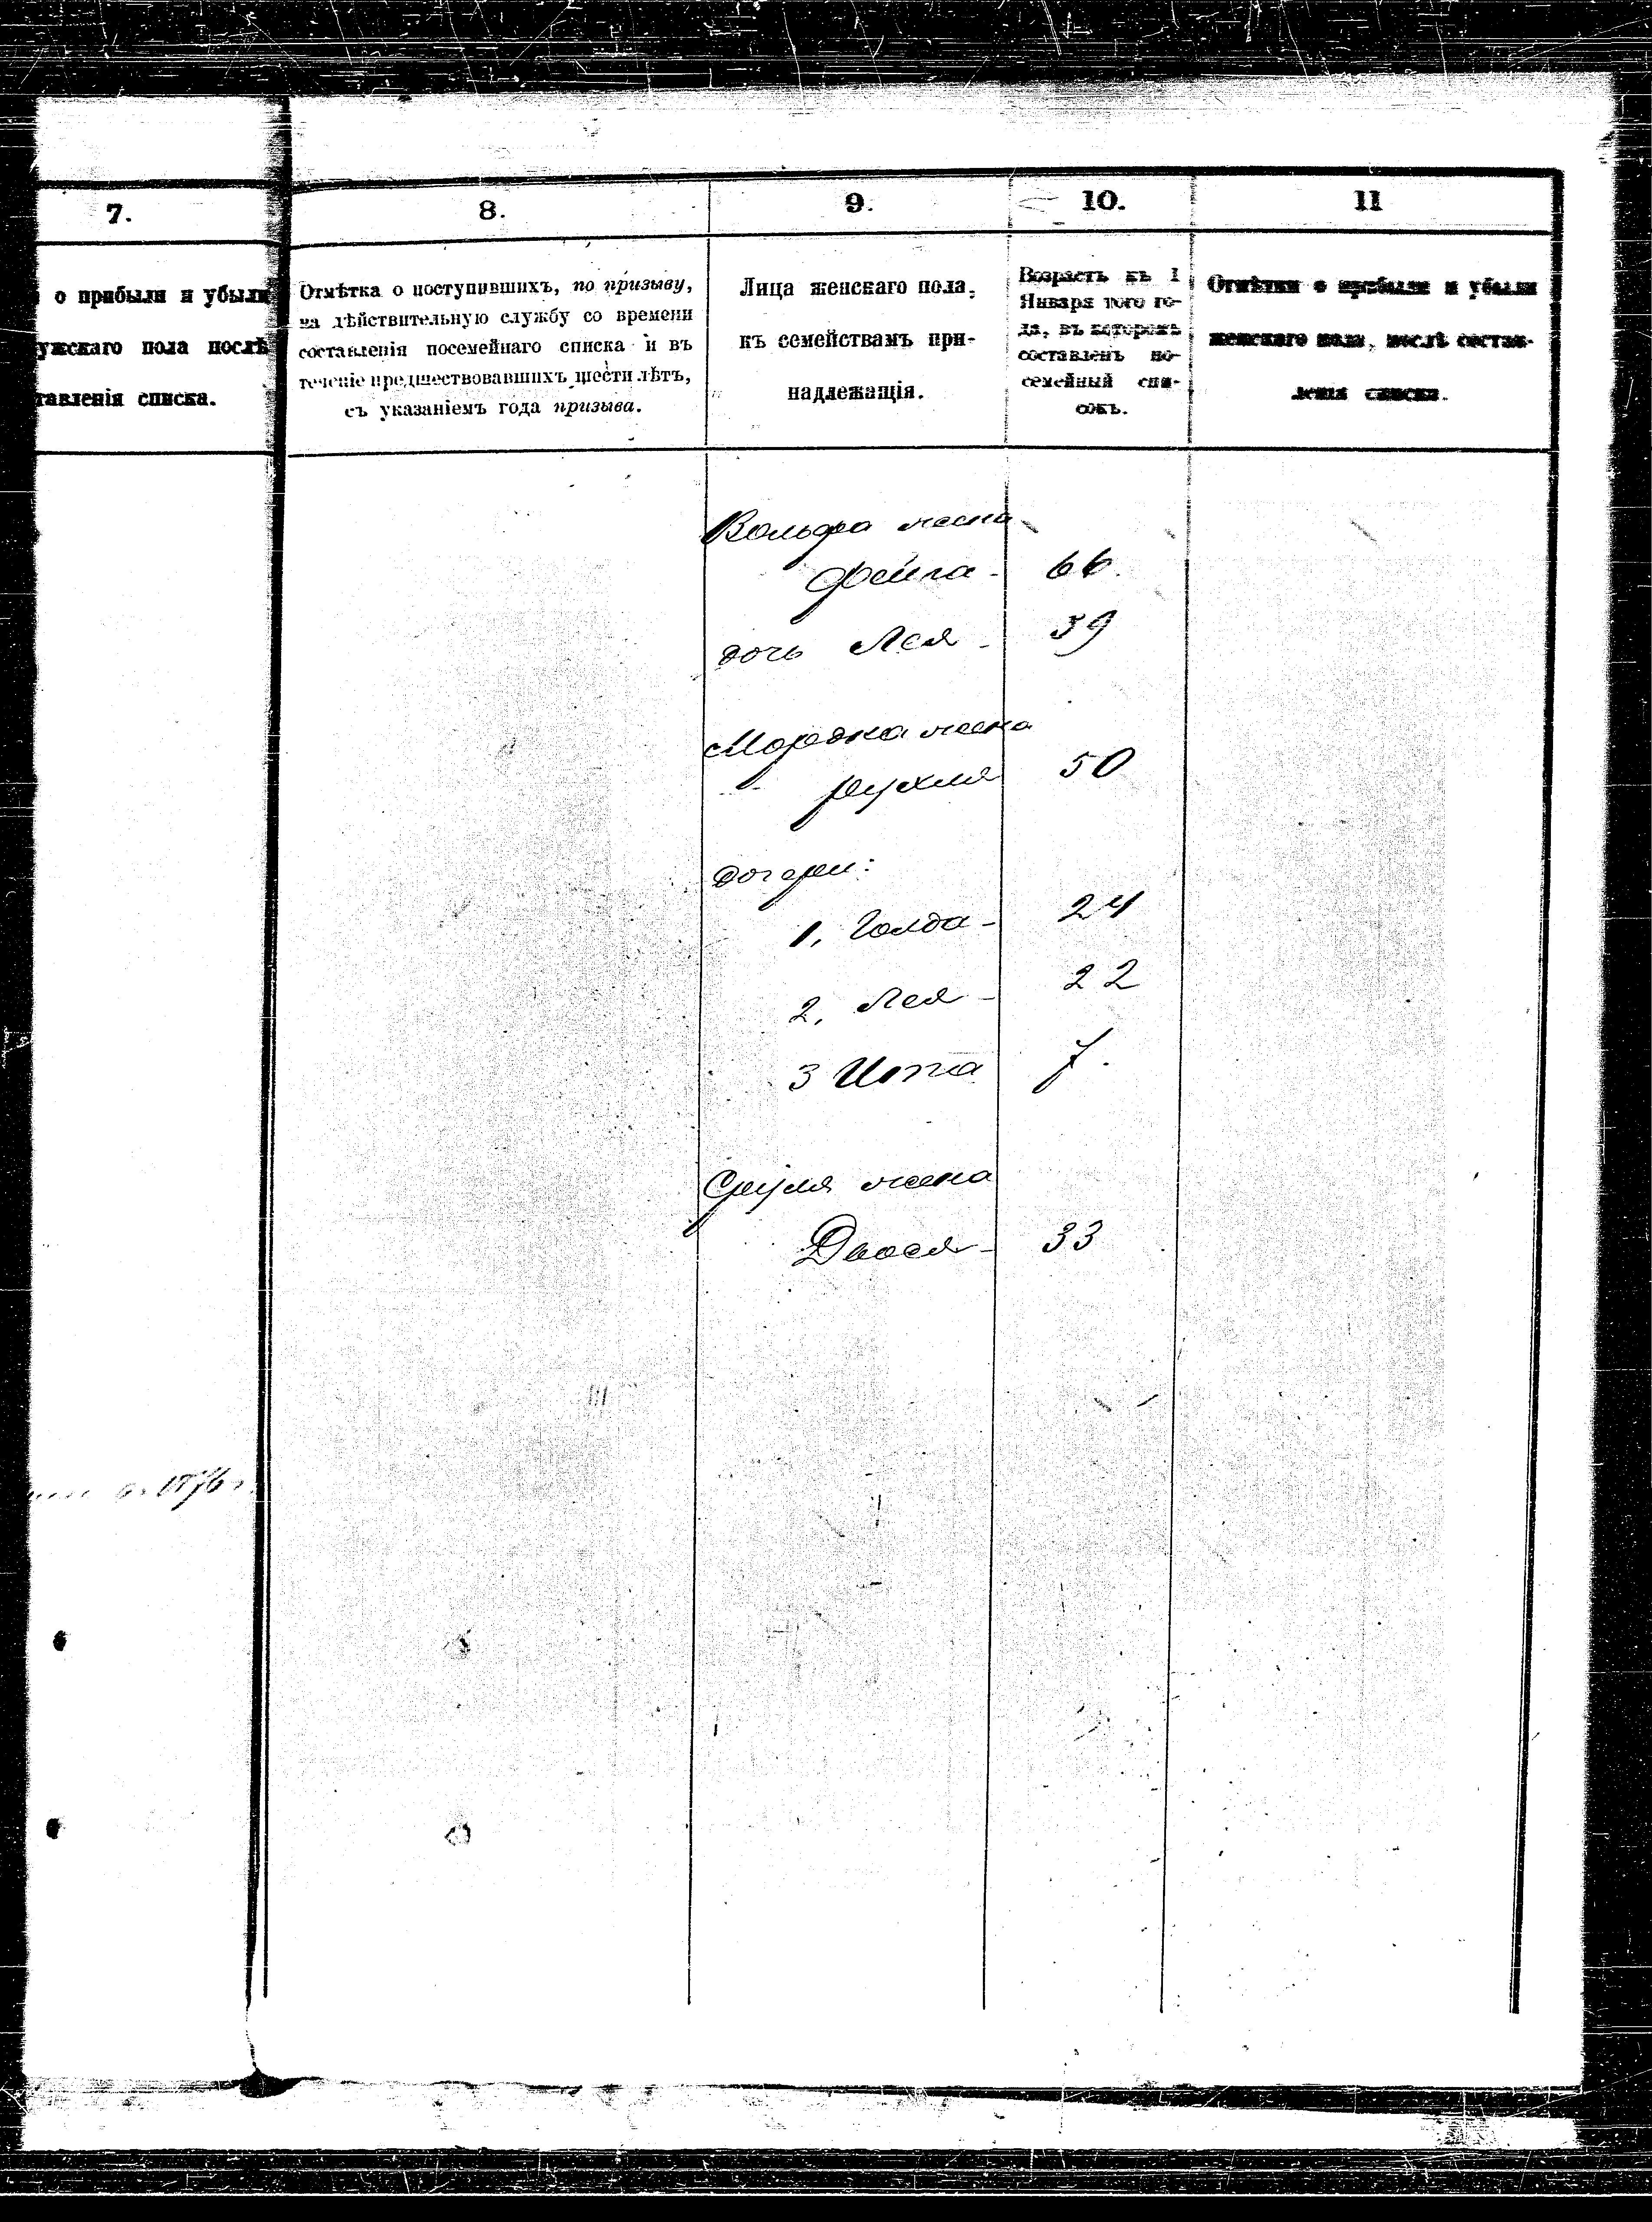 7.
о прибыли и убыли
ужскаго пола послѣ
тавленія списка.
8.
Отмѣтка о поступившихъ, по призыву,
на дѣйствительную службу со времени
составленія посемейнаго списка и въ
теченіе предшествовавшихъ шести лѣтъ,
съ указаніемъ года призыва.
9.
Лица женскаго пола,
къ семействамъ при-
надлежащія.
10.
Возрастъ къ 1
Января того го-
да, въ которомъ
составленъ по-
семейный спи-
сокъ.
11
Отмѣтки о прибыли и убыли
женскаго пола, послѣ состав-
ленія списка.
Вольфа жена
Фейга - 66.
дочь Лея - 39
Мордка жена
Рухля 50
дочери:
1, Голда - 24
2, Лея - 22
3 Итта 7.
Сруля жена
Двося - 33
1876